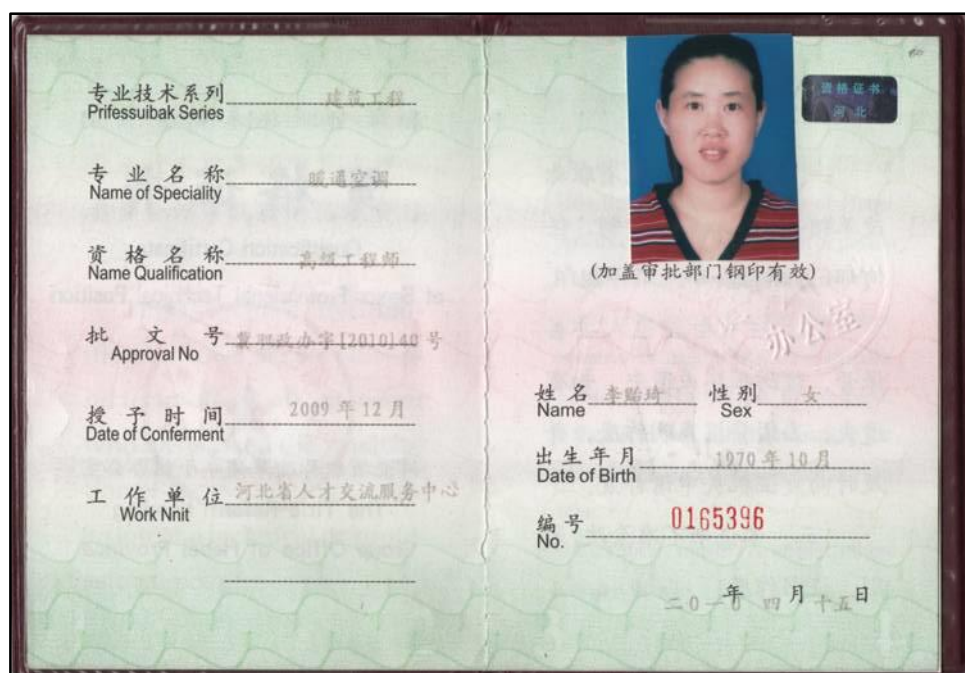 专业技术系列 建筑工程
Prifessuibak Series
专业名称 暖通空调
Name of Speciality
资格名称 高级工程师
Name Qualification
批文号 冀职改办字[2010]40号
Approval No
授予时间 2009年12月
Date of Conferment
工作单位 河北省人才交流服务中心
Work Nnit
资格证书
河北
(加盖审批部门钢印有效)
办公室
姓名 李贻琦 性别 女
Name Sex
出生年月 1970年10月
Date of Birth
编号 0165396
No.
二0一0年四月十五日